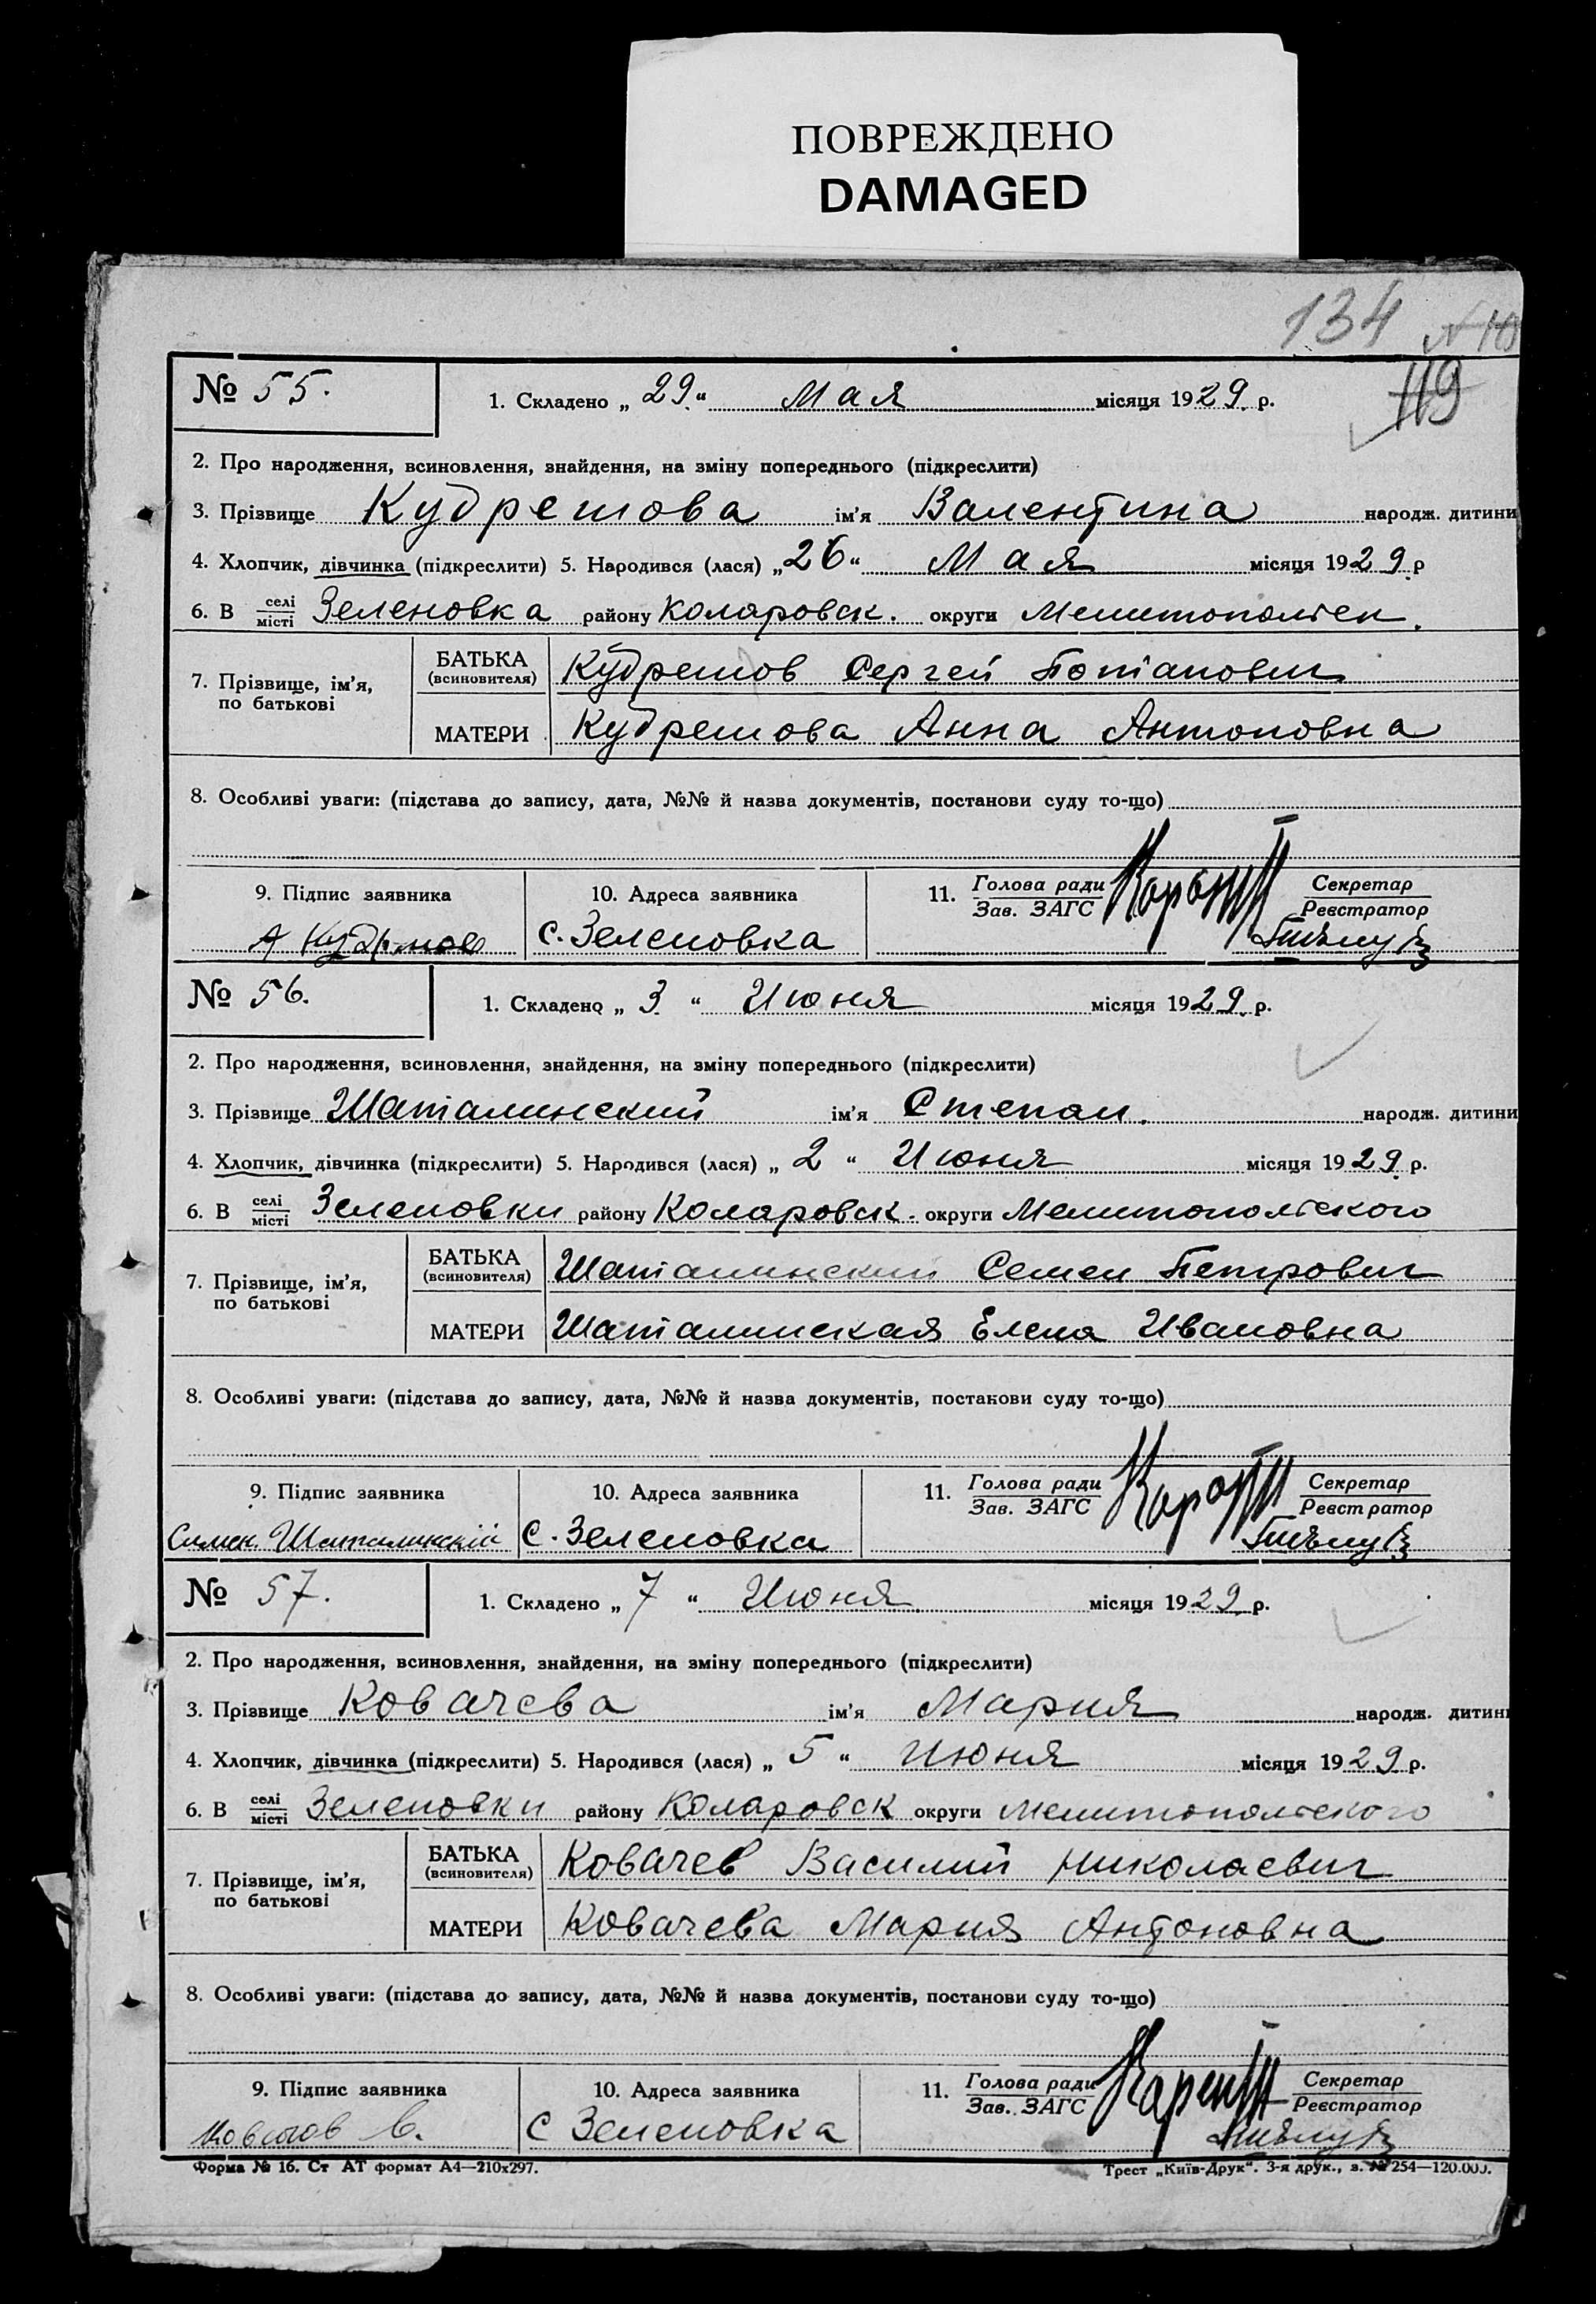 ПОВРЕЖДЕНО
DAMAGED
134
119
№ 55.
1. Складено „ 29 “ Мая місяця 1929 р.
2. Про народження, всиновлення, знайдення, на зміну попереднього (підкреслити)
3. Прізвище Кудрешова ім’я Валентина народж. дитини
4. Хлопчик, дівчинка (підкреслити) 5. Народився (лася) „ 26 “ Мая місяця 1929 р
6. В селі місті Зеленовка району Коларовск. округи Мелитопольск.
7. Прізвище, ім’я, по батькові
БАТЬКА (всиновителя) Кудрешов Сергей Потапович
МАТЕРИ Кудрешова Анна Антоновна
8. Особливі уваги: (підстава до запису, дата, №№ й назва документів, постанови суду то-що)
9. Підпис заявника
10. Адреса заявника
11. Голова ради Зав. ЗАГС
Секретар Реєстратор
с. Зеленовка
№ 56.
1. Складено „ 3 “ Июня місяця 1929 р.
2. Про народження, всиновлення, знайдення, на зміну попереднього (підкреслити)
3. Прізвище Шаталинский ім’я Степан. народж. дитини
4. Хлопчик, дівчинка (підкреслити) 5. Народився (лася) „ 2 “ Июня місяця 1929 р.
6. В селі місті Зеленовки району Коларовск. округи Мелитопольского
7. Прізвище, ім’я, по батькові
БАТЬКА (всиновителя) Шаталинский Семен Петрович
МАТЕРИ Шаталинская Елена Ивановна
8. Особливі уваги: (підстава до запису, дата, №№ й назва документів, постанови суду то-що)
9. Підпис заявника
10. Адреса заявника
11. Голова ради Зав. ЗАГС
Секретар Реєстратор
Симен. Шаталинскій
с. Зеленовка
№ 57.
1. Складено „ 7 “ Июня місяця 1929 р.
2. Про народження, всиновлення, знайдення, на зміну попереднього (підкреслити)
3. Прізвище Ковачева ім’я Мария народж. дитини
4. Хлопчик, дівчинка (підкреслити) 5. Народився (лася) „ 5 “ Июня місяця 1929 р.
6. В селі місті Зеленовки району Коларовск округи Мелитопольского
7. Прізвище, ім’я, по батькові
БАТЬКА (всиновителя) Ковачев Василий Николаевич
МАТЕРИ Ковачева Мария Антоновна
8. Особливі уваги: (підстава до запису, дата, №№ й назва документів, постанови суду то-що)
9. Підпис заявника
10. Адреса заявника
11. Голова ради Зав. ЗАГС
Секретар Реєстратор
с Зеленовка
Форма № 16. Ст АТ формат А4—210х297.
Трест „Київ-Друк“. 3-я друк., з. № 254—120.000.